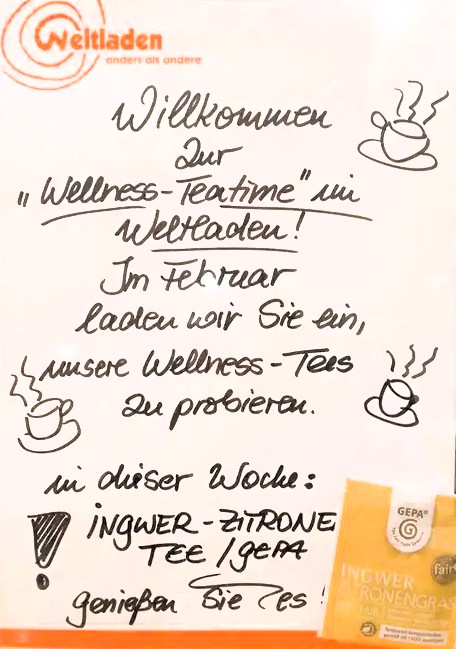 Weltladen
anders als andere
Willkommen
zur
"Wellness-Teatime" im
Weltladen!
Im Februar
laden wir Sie ein,
unsere Wellness-Tees
zu probieren.
in dieser Woche:
INGWER-ZITRONE
TEE / GEPA
genießen Sie es!
GEPA
fair
INGWER
ZITRONENGRAS